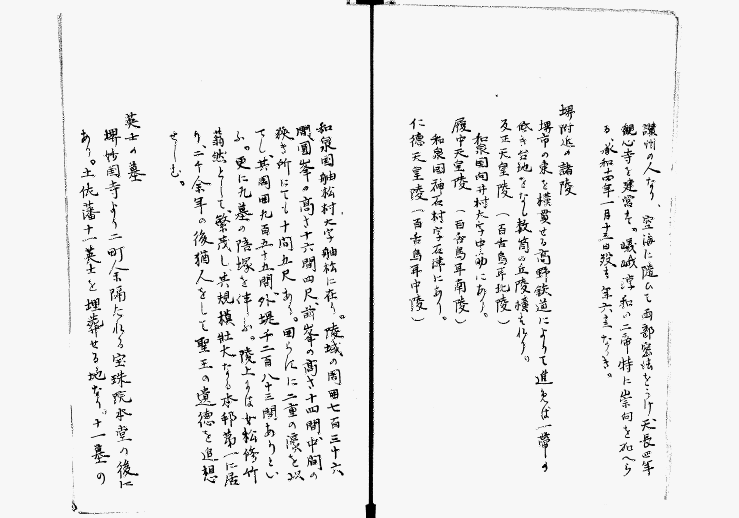 讃州の人なり、空海に随ひて両部密法をうけ天長四年
観心寺を建営す。嵯峨淳和の二帝特に崇向を加へら
る、承和十四年一月十三日寂す 年六十三なりき。
堺附近の諸陵
堺市の東を横貫せる高野鉄道によりて進めば一帯の
低き台地をなし数箇の丘陵横はれり。
反正天皇陵（百舌鳥耳北陵）
和泉国向井村大字中筋にあり。
履中天皇陵（百舌鳥耳南陵）
和泉国神石村字石津にあり。
仁徳天皇陵（百舌鳥耳中陵）
和泉国舳松村大字舳松に在り。陵域の周囲七百三十六
間、圓峯の高さ十六間四尺前峯の高さ十四間中間の
狭き所にても十間五尺あり。周らすに二重の濠を以
てし其周囲九百五十五間、外堤千二百八十三間ありとい
ふ。更に九墓の陪塚を伴ふ。陵上には女松修竹
蓊然として繁茂し其規模壮大なる本邦第一に居
り、二千余年の後猶人をして聖王の遺徳を追想
せしむ。
英士の墓
堺妙国寺より二町余隔たれる宝珠院本堂の後に
あり。土佐藩十一英士を埋葬せる地なり。十一墓の